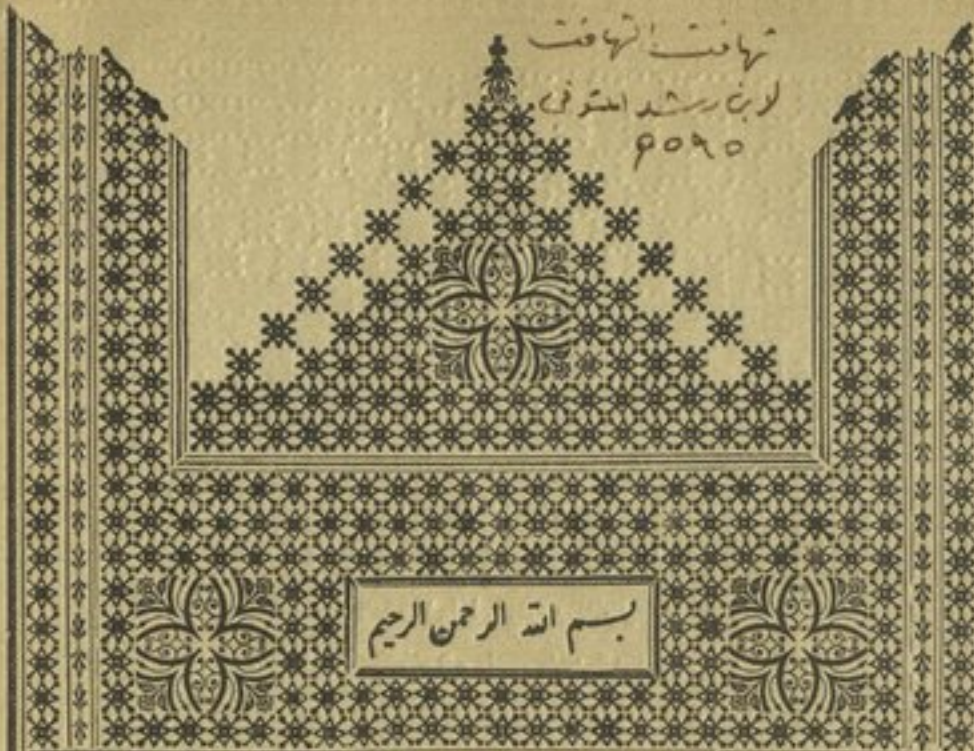 تهافت التهافت
لابن رشد المتوفى
٥٩٥
بسم الله الرحمن الرحيم